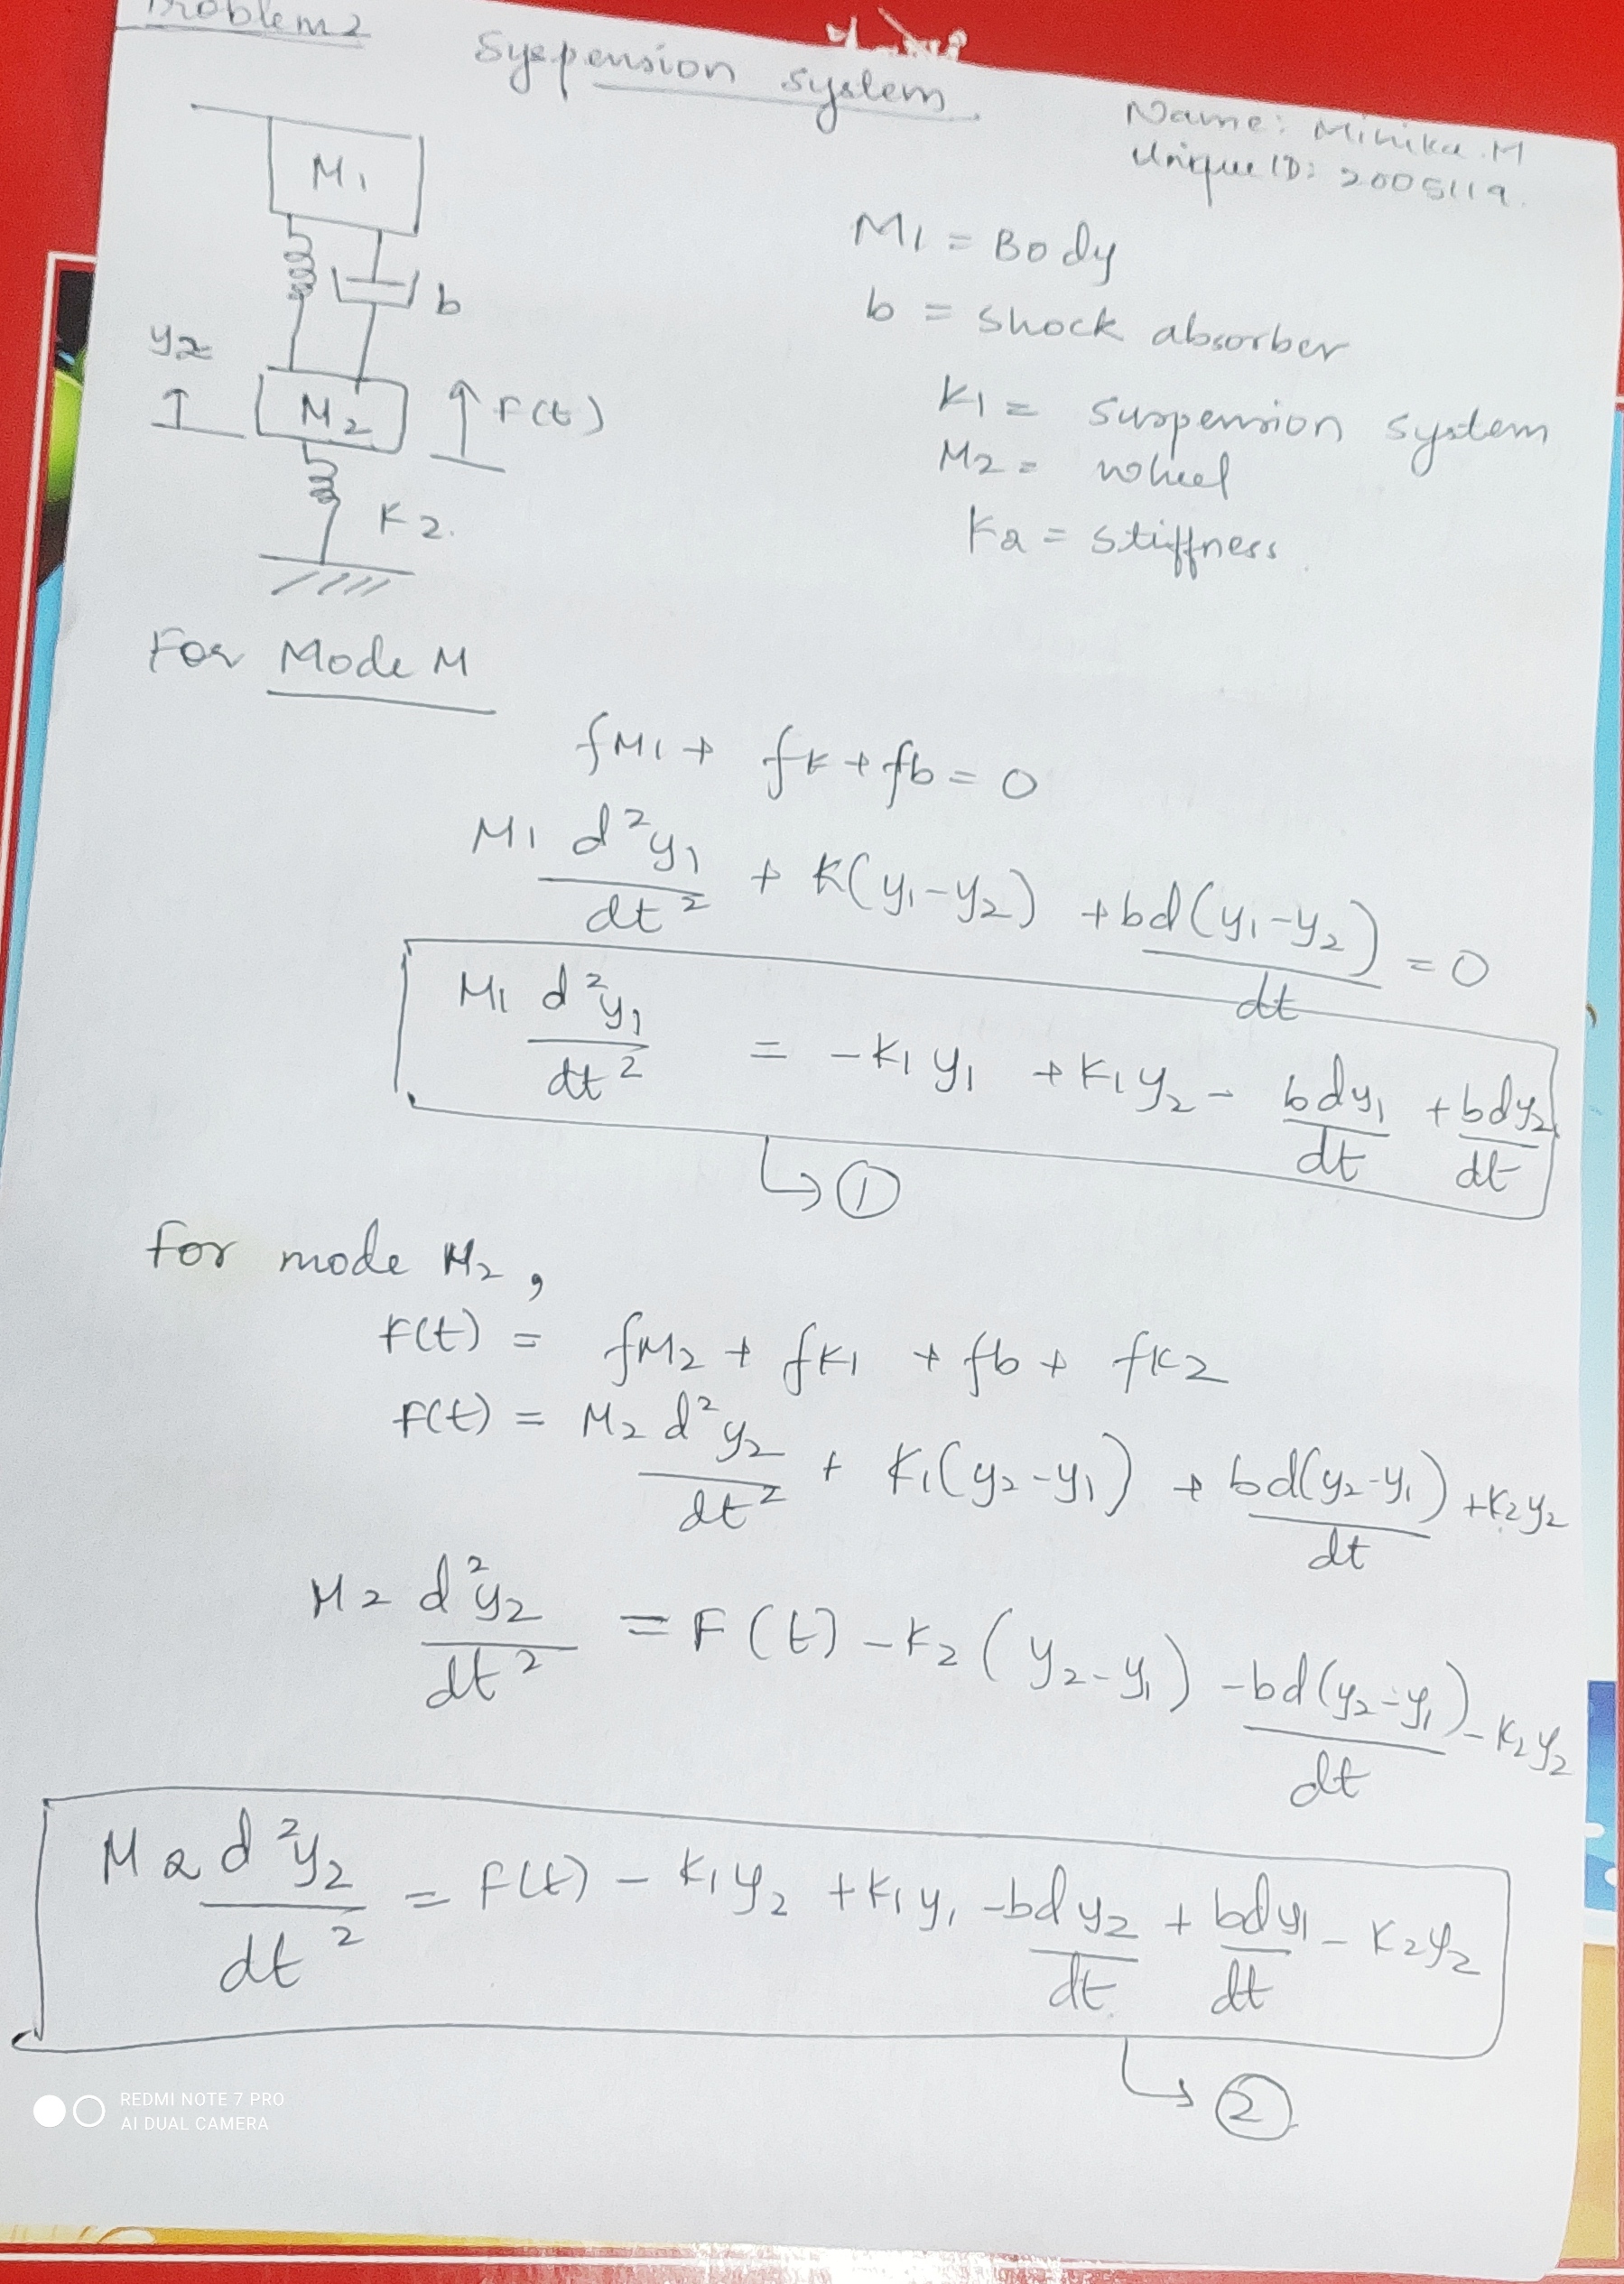 Problem 2
Syspension system
Name: Minika.M
Unique ID: 2005119.
M1
b
y2
M2
F(t)
K2.
M1 = Body
b = shock absorber
K1 = suspension system
M2 = wheel
K2 = stiffness
For Mode M
fM1 + fK + fb = 0
M1 d²y1/dt² + K(y1-y2) + bd(y1-y2)/dt = 0
M1 d²y1/dt² = -K1y1 + K1y2 - bdy1/dt + bdy2/dt
①
For mode M2,
F(t) = fM2 + fK1 + fb + fK2
F(t) = M2 d²y2/dt² + K1(y2-y1) + bd(y2-y1)/dt + K2y2
M2 d²y2/dt² = F(t) - K2(y2-y1) - bd(y2-y1)/dt - K2y2
M2 d²y2/dt² = F(t) - K1y2 + K1y1 - bdy2/dt + bdy1/dt - K2y2
②
REDMI NOTE 7 PRO
AI DUAL CAMERA